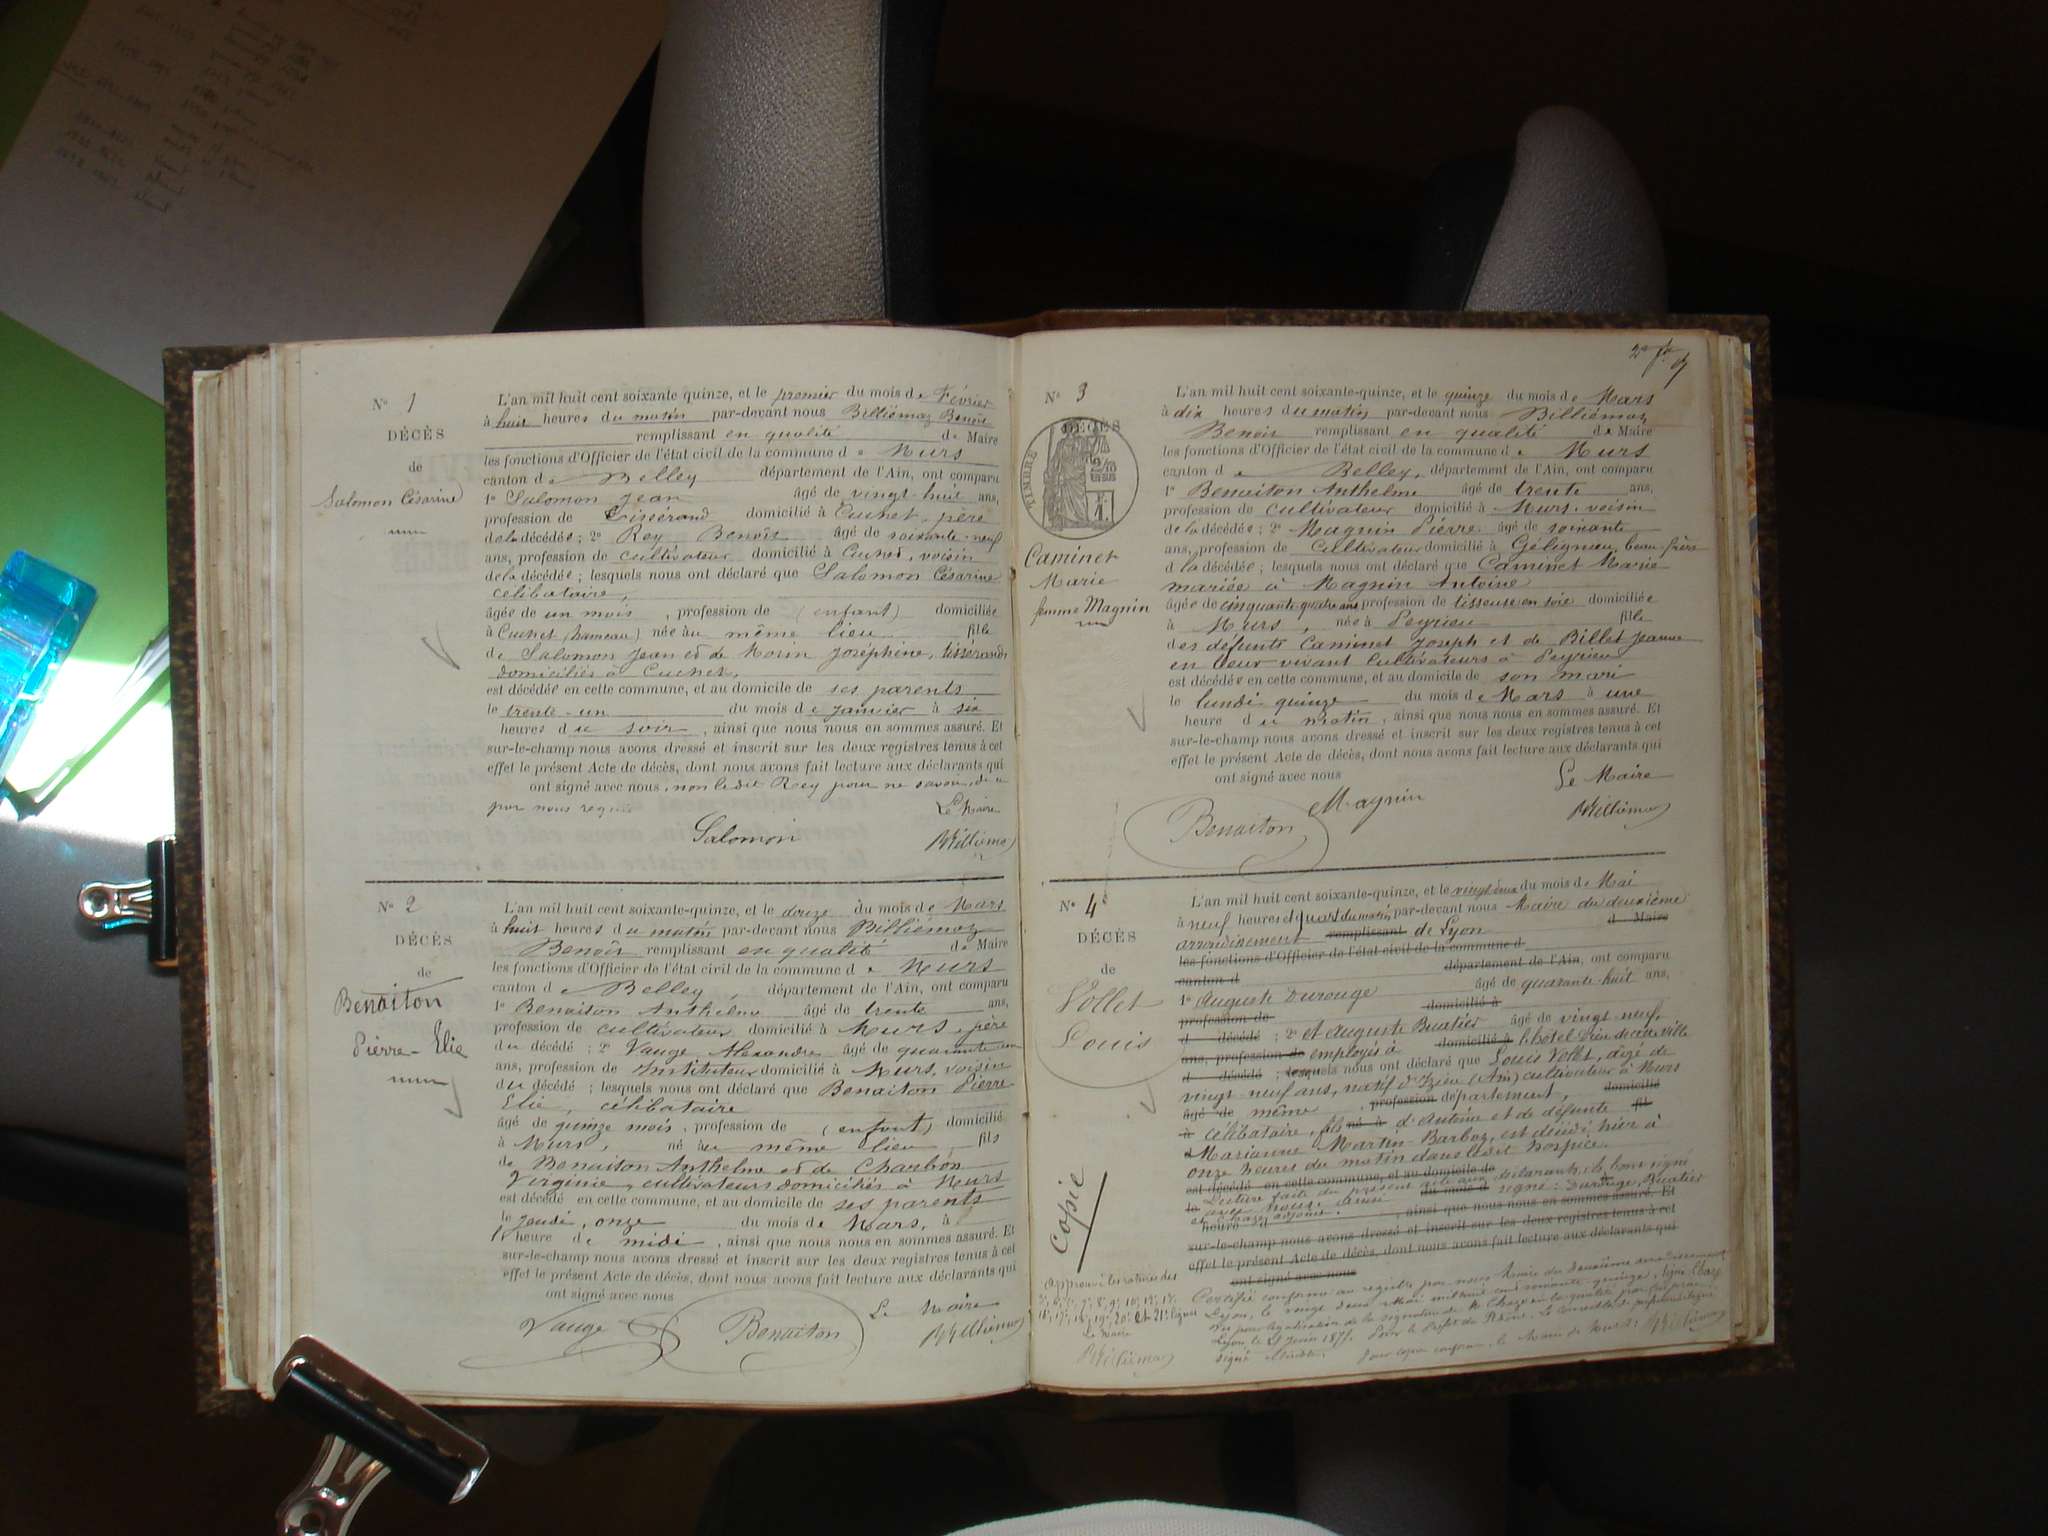 N° 1
DÉCÈS
de
Salomon Césarine
L'an mil huit cent soixante quinze, et le premier du mois de Février
à huit heures du matin par-devant nous Billiémaz Benoit
remplissant en qualité de Maire
les fonctions d'Officier de l'état civil de la commune de Murs
canton de Belley département de l'Ain, ont comparu
1° Salomon Jean âgé de vingt-huit ans,
profession de Tisserand domicilié à Cuchet, père
de la décédée ; 2° Rey Benoit âgé de soixante-neuf
ans, profession de cultivateur domicilié à Cuchet, voisin
de la décédée ; lesquels nous ont déclaré que Salomon Césarine
célibataire,
âgée de un mois, profession de (enfant) domiciliée
à Cuchet (hameau) née au même lieu fille
de Salomon Jean et de Morin Joséphine, tisserands
domiciliés à Cuchet,
est décédée en cette commune, et au domicile de ses parents
le trente-un du mois de Janvier à six
heures du soir, ainsi que nous nous en sommes assuré. Et
sur-le-champ nous avons dressé et inscrit sur les deux registres tenus à cet
effet le présent Acte de décès, dont nous avons fait lecture aux déclarants qui
ont signé avec nous, non le dit Rey pour ne savoir, de ce
par nous requis Le Maire
Salomon Billiémaz
N° 2
DÉCÈS
de
Benaiton
Pierre-Elie
L'an mil huit cent soixante-quinze, et le douze du mois de Mars
à huit heures du matin par-devant nous Billiémaz
Benoit remplissant en qualité de Maire
les fonctions d'Officier de l'état civil de la commune de Murs
canton de Belley, département de l'Ain, ont comparu
1° Benaiton Anthelme âgé de trente ans,
profession de cultivateur domicilié à Murs, père
du décédé ; 2° Vauge Alexandre âgé de quarante-un
ans, profession de Instituteur domicilié à Murs, voisin
du décédé ; lesquels nous ont déclaré que Benaiton Pierre
Elie, célibataire
âgé de quinze mois, profession de (enfant) domicilié
à Murs, né au même lieu, fils
de Benaiton Anthelme et de Charbon
Virginie, cultivateurs domiciliés à Murs
est décédé en cette commune, et au domicile de ses parents
le jeudi, onze du mois de Mars, à
l'heure de midi, ainsi que nous nous en sommes assuré. Et
sur-le-champ nous avons dressé et inscrit sur les deux registres tenus à cet
effet le présent Acte de décès, dont nous avons fait lecture aux déclarants qui
ont signé avec nous
Le Maire
Vauge Benaiton Billiémaz
N° 3
DÉCÈS
TIMBRE
Caminet
Marie
femme Magnin
L'an mil huit cent soixante-quinze, et le quinze du mois de Mars
à dix heures du matin par-devant nous Billiémaz
Benoit remplissant en qualité de Maire
les fonctions d'Officier de l'état civil de la commune de Murs
canton de Belley, département de l'Ain, ont comparu
1° Benaiton Anthelme âgé de trente ans,
profession de cultivateur domicilié à Murs, voisin
de la décédée ; 2° Magnin Pierre âgé de soixante
ans, profession de cultivateur domicilié à Gélignieu, beau-frère
d la décédée ; lesquels nous ont déclaré que Caminet Marie
mariée à Magnin Antoine
âgée de cinquante quatre ans profession de tisseuse en soie domiciliée
à Murs, née à Peyrieu fille
des défunts Caminet Joseph et de Billet Jeanne
en leur vivant cultivateurs à Peyrieu
est décédée en cette commune, et au domicile de son mari
le lundi quinze du mois de Mars à une
heure du matin, ainsi que nous nous en sommes assuré. Et
sur-le-champ nous avons dressé et inscrit sur les deux registres tenus à cet
effet le présent Acte de décès, dont nous avons fait lecture aux déclarants qui
ont signé avec nous Le Maire
Benaiton Magnin Billiémaz
N° 4
DÉCÈS
de
Vollet
Louis
Copie
L'an mil huit cent soixante-quinze, et le vingt deux du mois de Mai
à neuf heures et quart du matin par-devant nous Maire du deuxième
arrondissement remplissant de Lyon d Maire
les fonctions d'Officier de l'état civil de la commune d
canton d département de l'Ain, ont comparu
1° Auguste Durouge âgé de quarante-huit ans,
profession de domicilié à
d décédé ; 2° et Auguste Buatier âgé de vingt-neuf,
ans, profession de employés à domicilié à l'hôtel Dieu de cette ville
d décédé ; lesquels nous ont déclaré que Louis Vollet, âgé de
vingt neuf ans, natif d'Izieu (Ain) cultivateur à Murs
âgé de même profession département, domicilié
à célibataire, fils né à d'Antoine et de défunte fil
d Marianne Martin-Barbaz, est décédé hier à
onze heures du matin dans ledit hospice.
est décédé en cette commune, et au domicile de
Lecture faite du présent acte aux déclarants, ils l'ont signé
le avec nous. du mois d signé : Durouge, Buatier
et Chaze adjoint.
heure d , ainsi que nous nous en sommes assuré. Et
sur-le-champ nous avons dressé et inscrit sur les deux registres tenus à cet
effet le présent Acte de décès, dont nous avons fait lecture aux déclarants qui
ont signé avec nous
Certifié conforme au registre par nous Maire du deuxième arrondissement
Lyon, le vingt deux Mai mil huit cent soixante-quinze, signé Chaze
Vu pour légalisation de la signature de M. Chaze
Lyon le 21 Juin 1875. Pour le Préfet du Rhône. Le Conseiller de préfecture délégué
Signé
Pour copie conforme, le Maire de Murs : Billiémaz
Approuvé les ratures des
20e et 21e lignes
Le Maire
Billiémaz